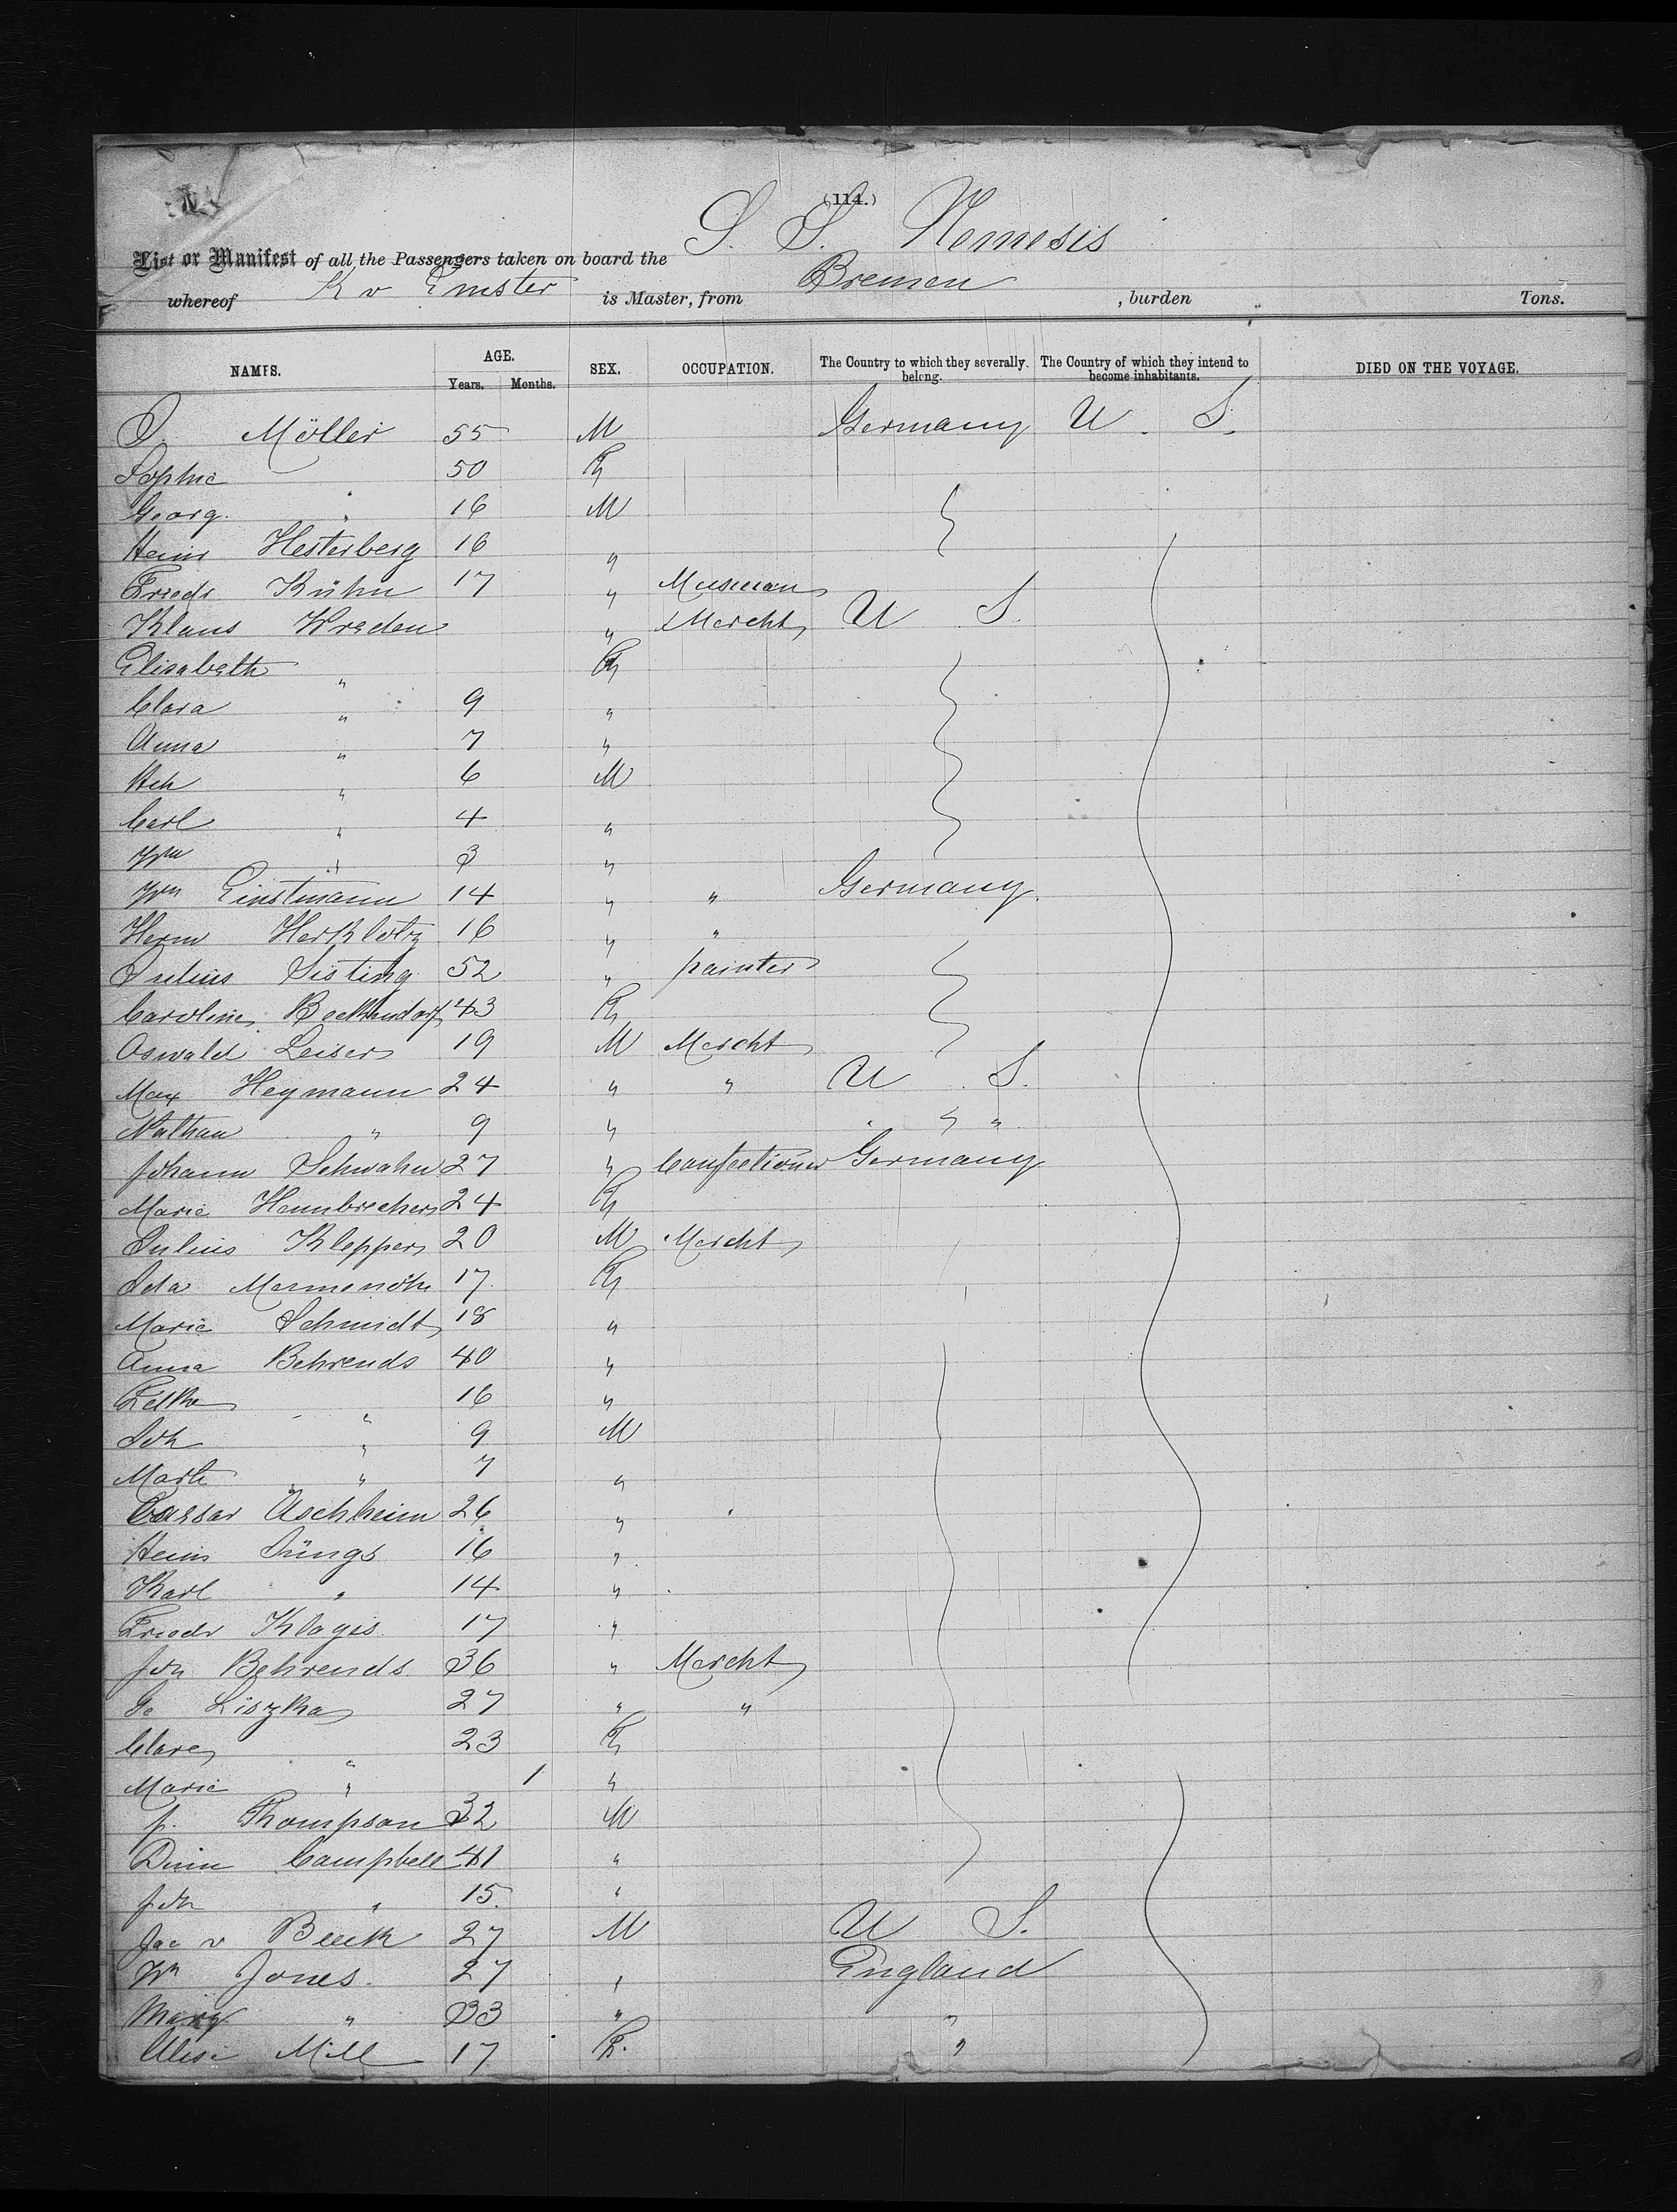 (114.)
List or Manifest of all the Passengers taken on board the S. S. Nemesis
whereof K v Emster is Master, from Bremen , burden Tons.
NAMES. AGE. Years. Months. SEX. OCCUPATION. The Country to which they severally belong. The Country of which they intend to become inhabitants. DIED ON THE VOYAGE.
J. Möller 55 M Germany U. S.
Sophie 50 F
Georg " 16 M
Heinr Hesterberg 16 "
Friedr Kühn 17 " Musician
Klaus Wreden " Mercht U S.
Elisabeth " F
Clara " 9 "
Anna " 7 "
Hch " 6 M
Carl " 4 "
Wm " 3 "
Wm Einstmann 14 " " Germany
Herm Herklotz 16 " "
Julius Sisting 52 " painter
Caroline Bockendorf 43 F
Oswald Leiser 19 M Mercht
Max Heymann 24 " " U S.
Nathan " 9 " " "
Johann Schwahn 27 " Confectioner Germany
Marie 24 F
Julius Klepper 20 M Mercht
Ida 17 F
Marie Schmidt 18 "
Anna Behrends 40 "
16 "
Joh " 9 M
" 7 "
Caesar Aschheim 26 "
Heinr Jüngs 16 "
Karl " 14 "
Friedr Klages 17 "
Joh Behrends 36 " Mercht
Ge Liszka 27 " "
Clare " 23 F
Marie " 1 "
J. Thompson 32 M
Campbell 41 "
Joh " 15 "
Jac v Beek 27 M U S.
Wm Jones 27 " England
Mary " 33 " "
Mill 17 F. "